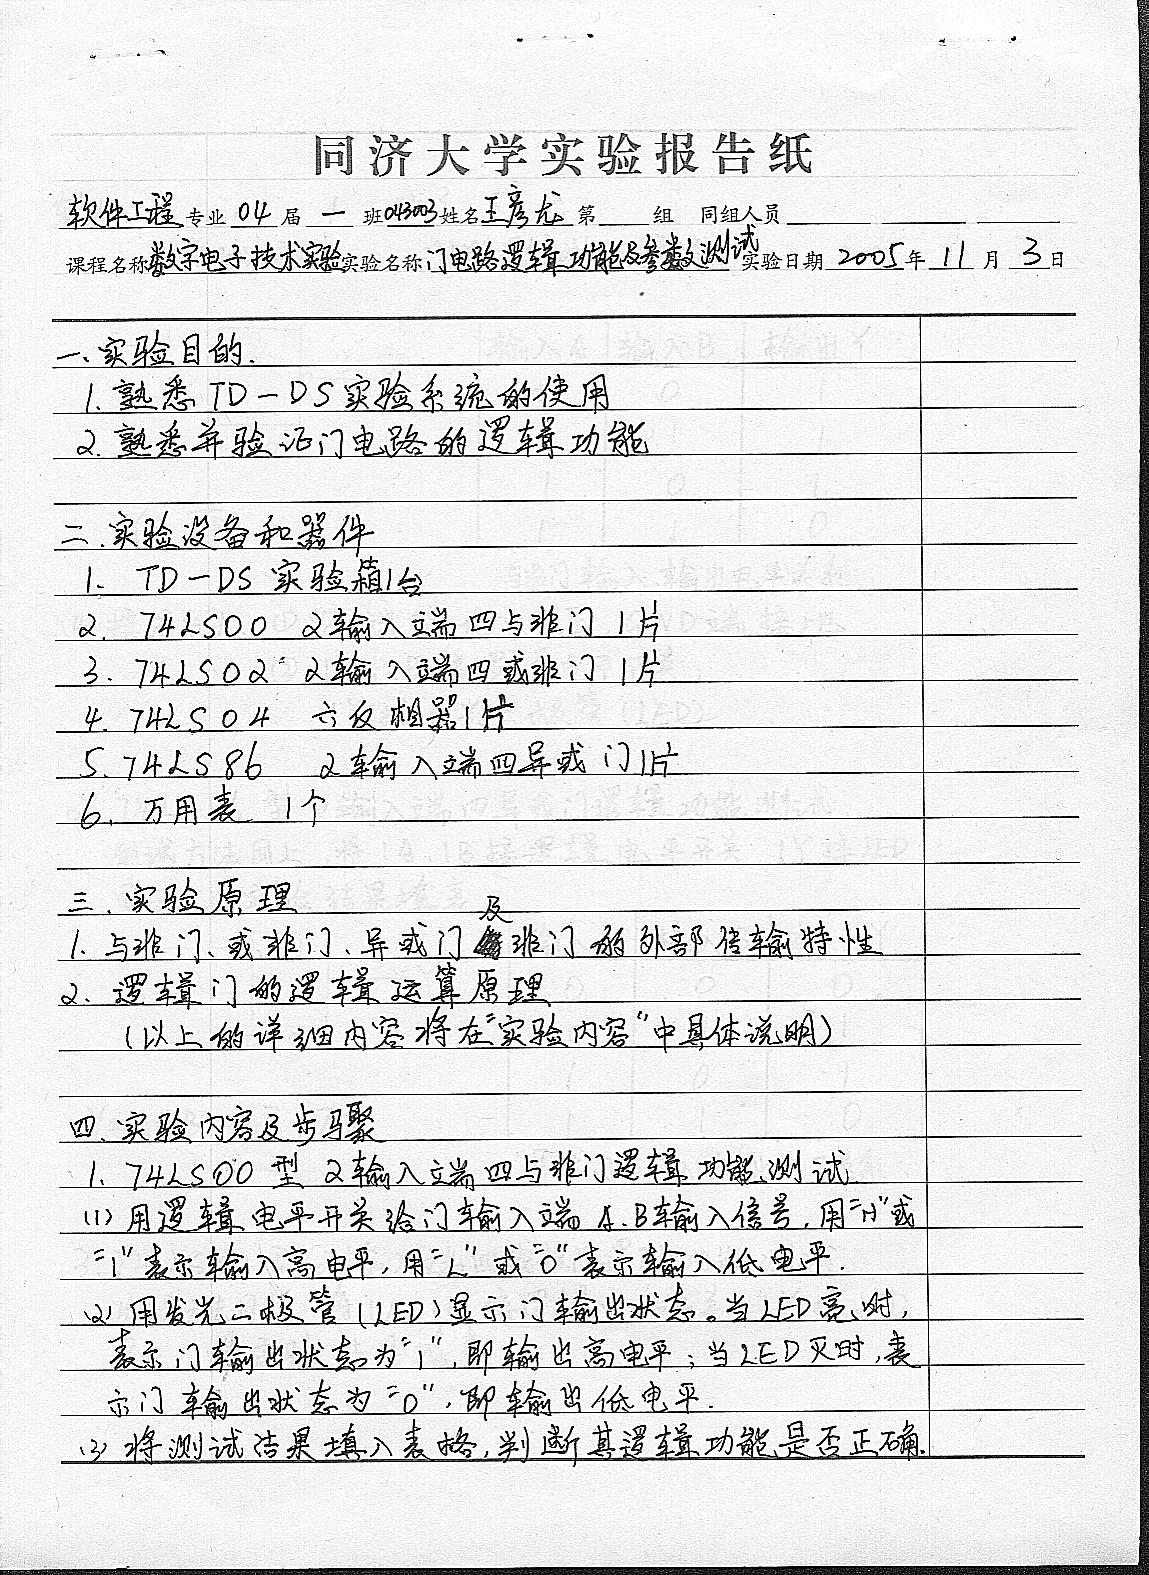 同济大学实验报告纸
软件工程专业 04 届 一 班043003姓名王彦尤 第 组 同组人员
课程名称数字电子技术实验实验名称门电路逻辑功能及参数测试实验日期 2005年 11 月 3日
一、实验目的.
1. 熟悉TD-DS实验系统的使用
2. 熟悉并验证门电路的逻辑功能
二.实验设备和器件
1. TD-DS 实验箱1台
2. 74LS00 2输入端四与非门 1片
3. 74LS02 2输入端四或非门 1片
4. 74LS04 六反相器1片
5. 74LS86 2输入端四异或门1片
6. 万用表 1个
三.实验原理
1. 与非门、或非门、异或门及非门的外部传输特性
2. 逻辑门的逻辑运算原理
(以上的详细内容将在"实验内容"中具体说明)
四.实验内容及步骤
1. 74LS00型 2输入端四与非门逻辑功能测试
(1) 用逻辑电平开关给门输入端A.B输入信号,用"H"或
"1"表示输入高电平,用"L"或"0"表示输入低电平.
(2) 用发光二极管(LED)显示门输出状态。当LED亮时,
表示门输出状态为"1",即输出高电平;当LED灭时,表
示门输出状态为"0",即输出低电平.
(3) 将测试结果填入表格,判断其逻辑功能是否正确.